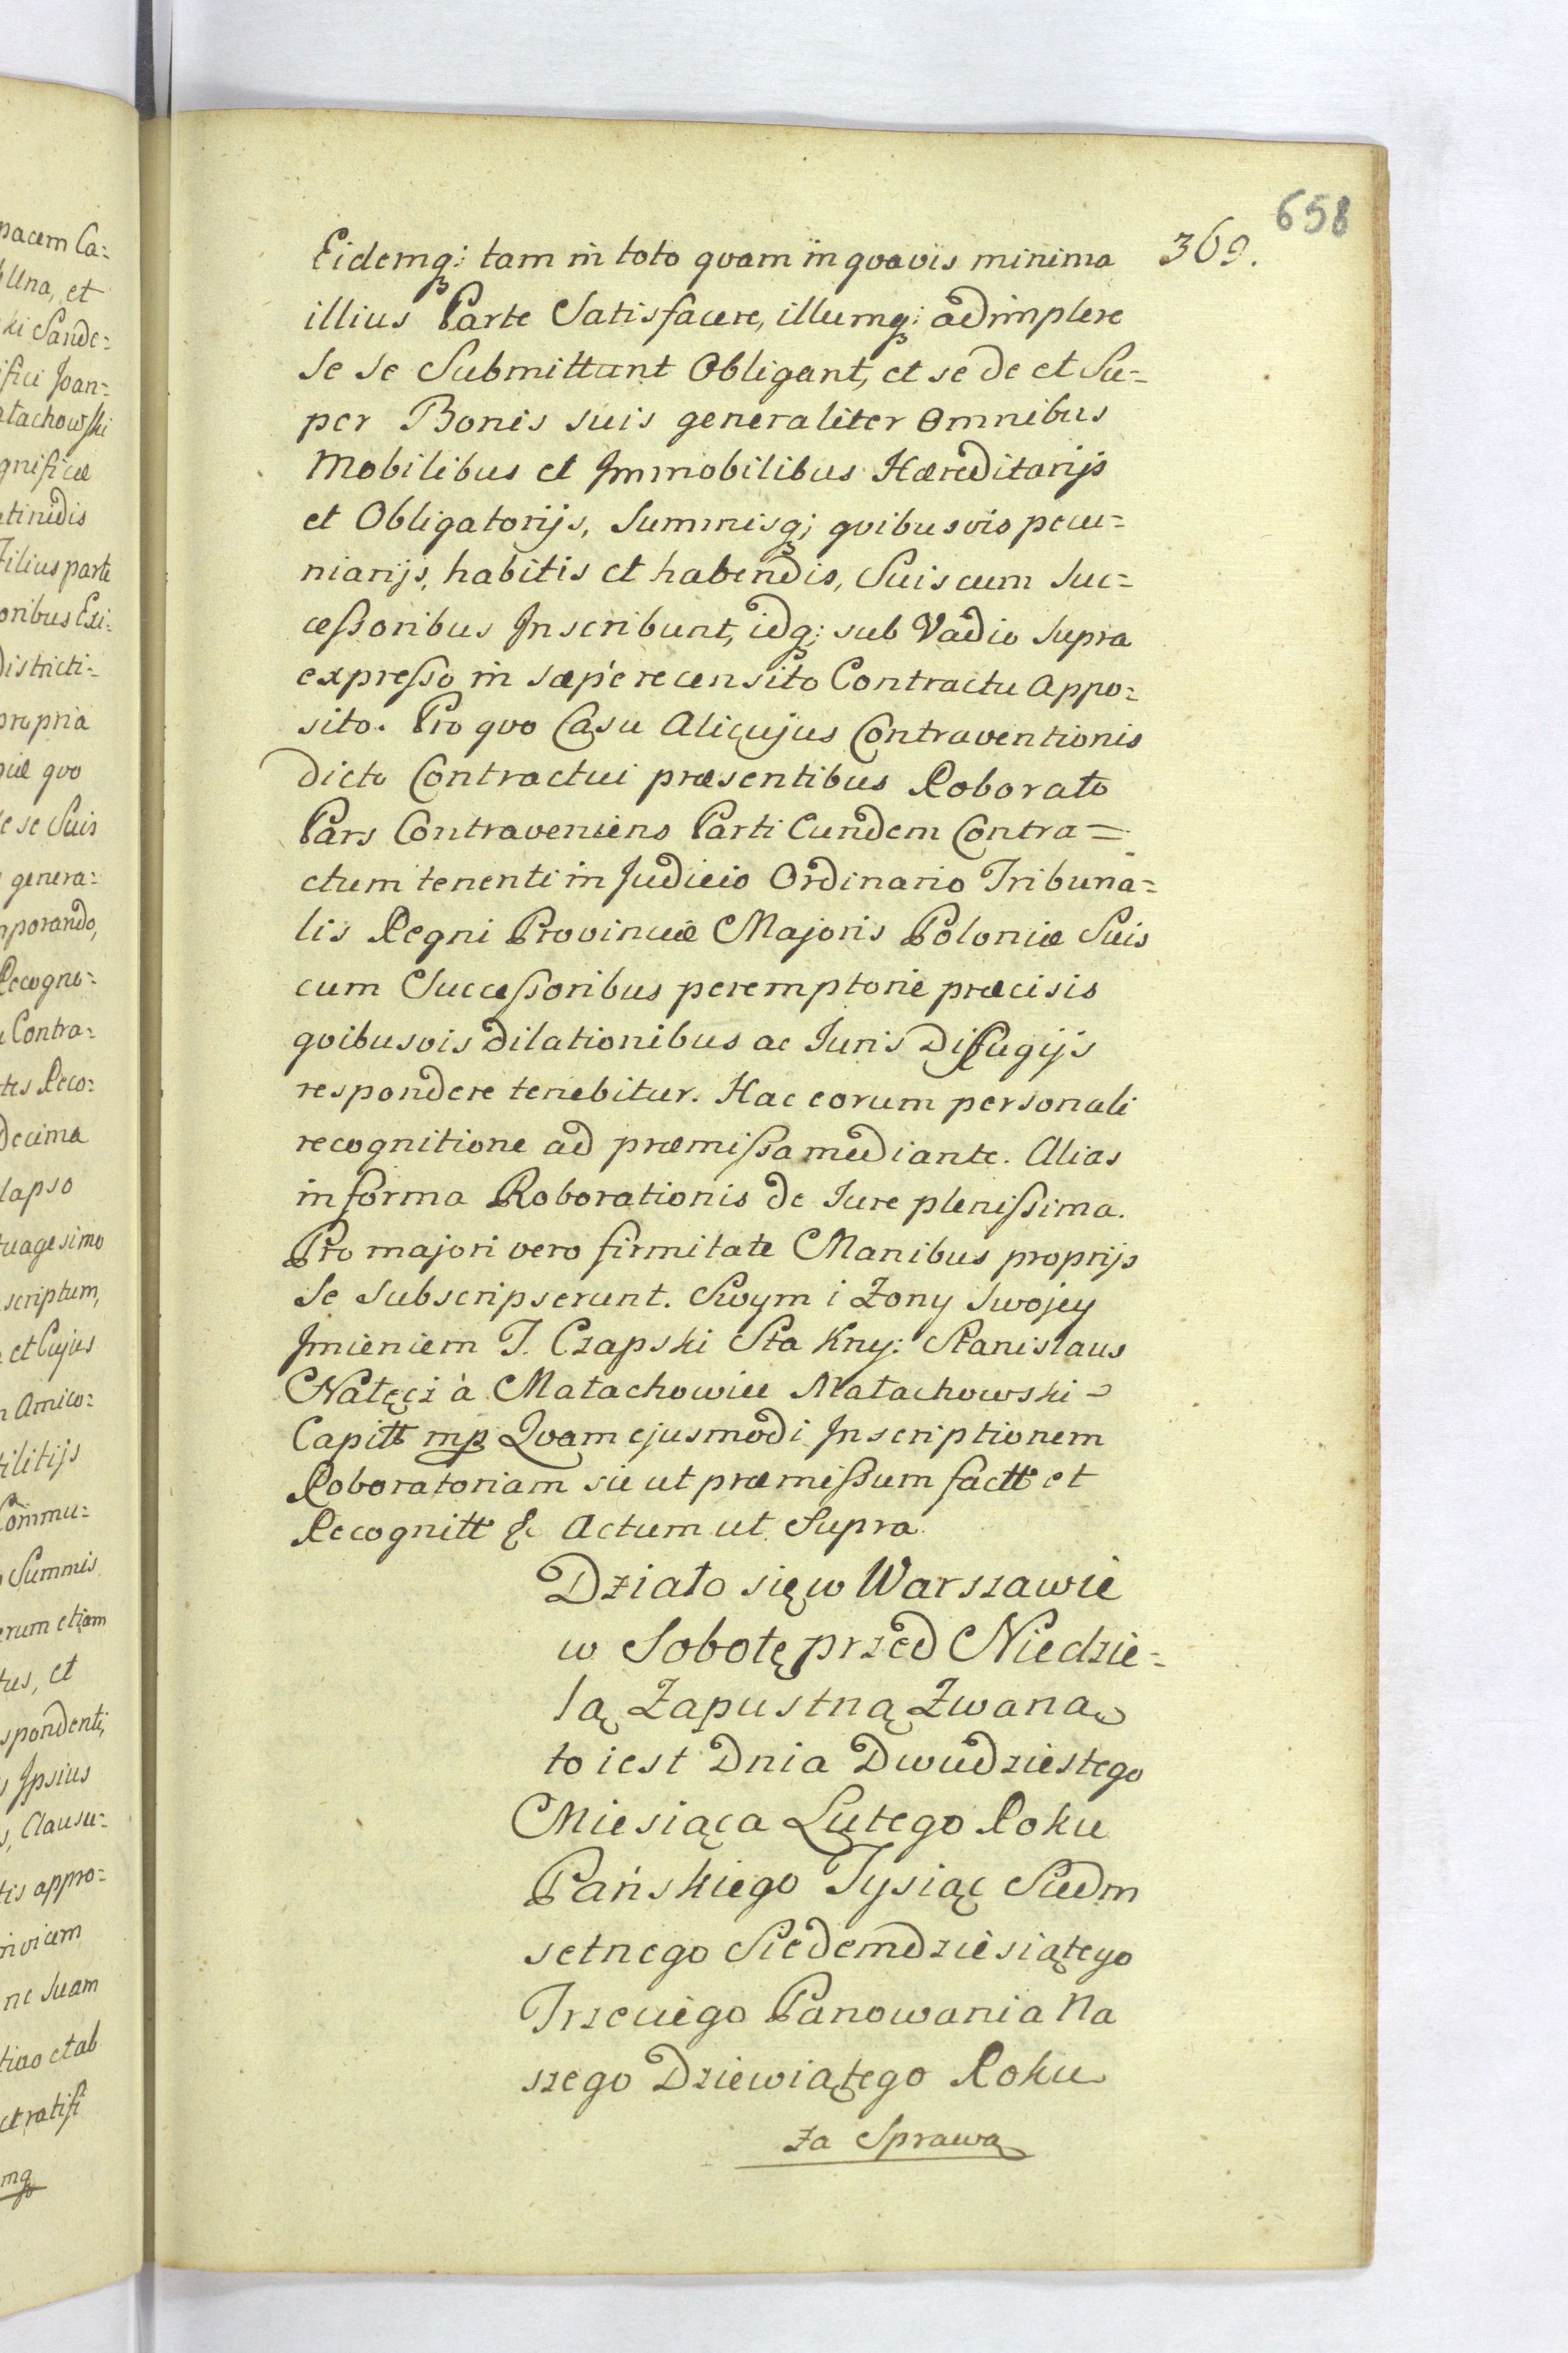 658
369.
Eidemq; tam in toto qvam in qvavis minima
illius Parte Satisfacere, illumq; adimplere
se se Submittunt Obligant, et se de et Su=
per Bonis suis generaliter omnibus
Mobilibus et Immobilibus Hæreditarijs
et Obligatorijs, Summisq; qvibusvis pecu=
niarijs, habitis et habendis, Suis cum Suc=
cessoribus Inscribunt, idq; sub Vadio supra
expresso in sæpe recensito Contractu Appo=
sito. Pro qvo Casu Alicujus Contraventionis
dicto Contractui præsentibus Roborato
Pars Contraveniens Parti Eundem Contra=
ctum tenenti in Judicio Ordinario Tribuna=
lis Regni Provinciæ Majoris Poloniæ Suis
cum Successoribus peremptorie præcisis
qvibusvis dilationibus ac Juris Diffugijs
respondere tenebitur. Hac eorum personali
recognitione ad præmissa mediante. Alias
in forma Roborationis de Jure plenissima.
Pro majori vero firmitate Manibus proprijs
se subscripserunt. Swym i Zony Swojey
Jmieniem T. Czapski Sta Kny: Stanislaus
Nałęcz à Małachowice Małachowski
Capitt mp Qvam ejusmodi Inscriptionem
Roboratoriam sic ut præmissum factt et
Recognitt &c Actum ut Supra
Działo się w Warszawie
w Sobotę przed Niedzie=
lą Zapustną Zwaną
to iest Dnia Dwudziestego
Miesiąca Lutego Roku
Pańskiego Tysiąc Siedm
setnego Siedemdziesiątego
Trzeciego Panowania Na
szego Dziewiątego Roku
Za Sprawą
pacem Ca=
Una, et
ki Sande=
fici Joan=
łachowski
gnificæ
tinidis
Filius parte
oribus Exi=
districti=
propria
qvo
se Suis
genera=
mporando,
Recogno=
Contra=
tes Reco=
decima
lapso
tuagesimo
scriptum,
et Cujus
Amico=
tilitijs
Commu=
Summis
erum etiam
tus, et
spondenti,
Ipsius
s, Clausu=
tis appro=
invicem
ne Suam
tivo et ab
et ratifi
mq